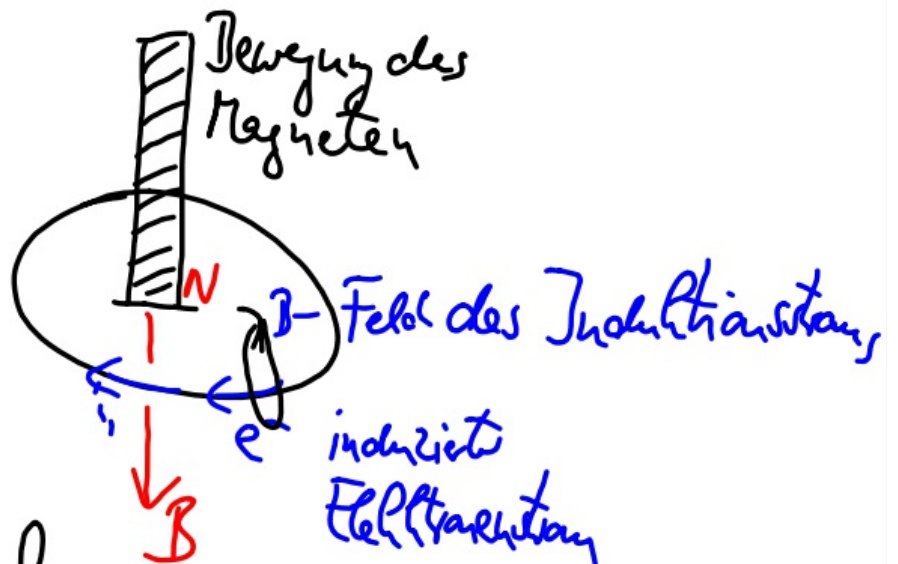 Bewegung des
Magneten
N
B-Feld des Induktionsstroms
e⁻
induzierter
Elektronenstrom
B